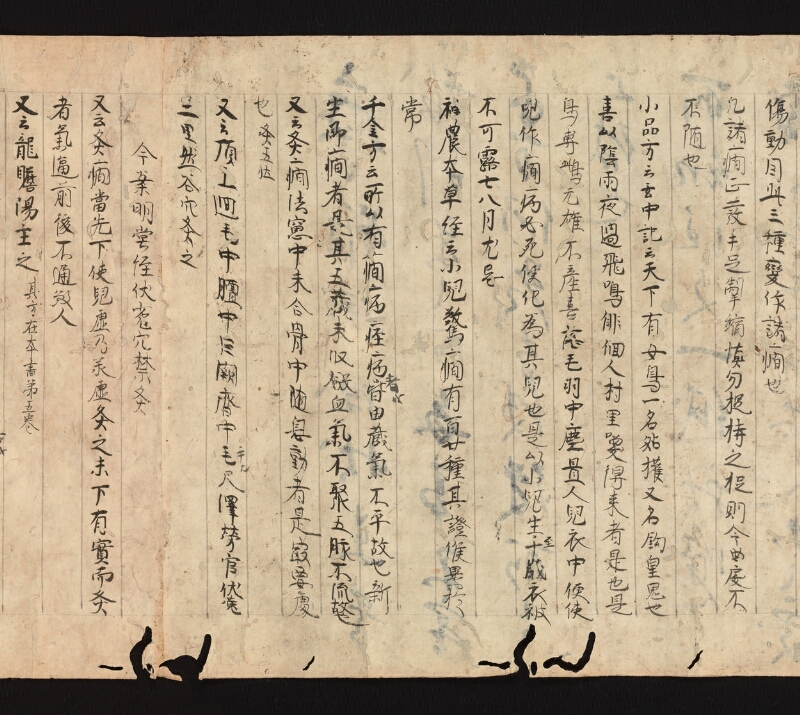 傷動同此三種變作諸癇也
凡諸癇正發手足掣縮慎勿捉持之捉則令曲戾不
不隨也
小品方云玄中記云天下有女鳥一名姑獲又名鉤皇鬼也
喜以陰雨夜過飛鳴徘徊人村里喚得來者是也是
鳥專雌无雄不產喜落毛羽中塵置人兒衣中便使
兒作癇病必死便化為其兒也是以小兒生至十歲衣被
不可露七八月尤忌
神農本草經云小兒驚癇有百廿種其證候異於
常
千金方云所以有癇病痓病者皆由藏氣不平故也新
生即癇者是其五藏未收斂血氣不聚五脉不流
又云灸癇法窻中未合骨中隨息動者是最要處
也灸五壯
又云頂上迴毛中
三里然谷
今案明堂經伏菟穴禁灸
又云灸癇當先下使兒虛乃承虛灸之未下有實而灸
者氣逼前後不通殺人
又云龍膽湯主之其方在本書第五卷